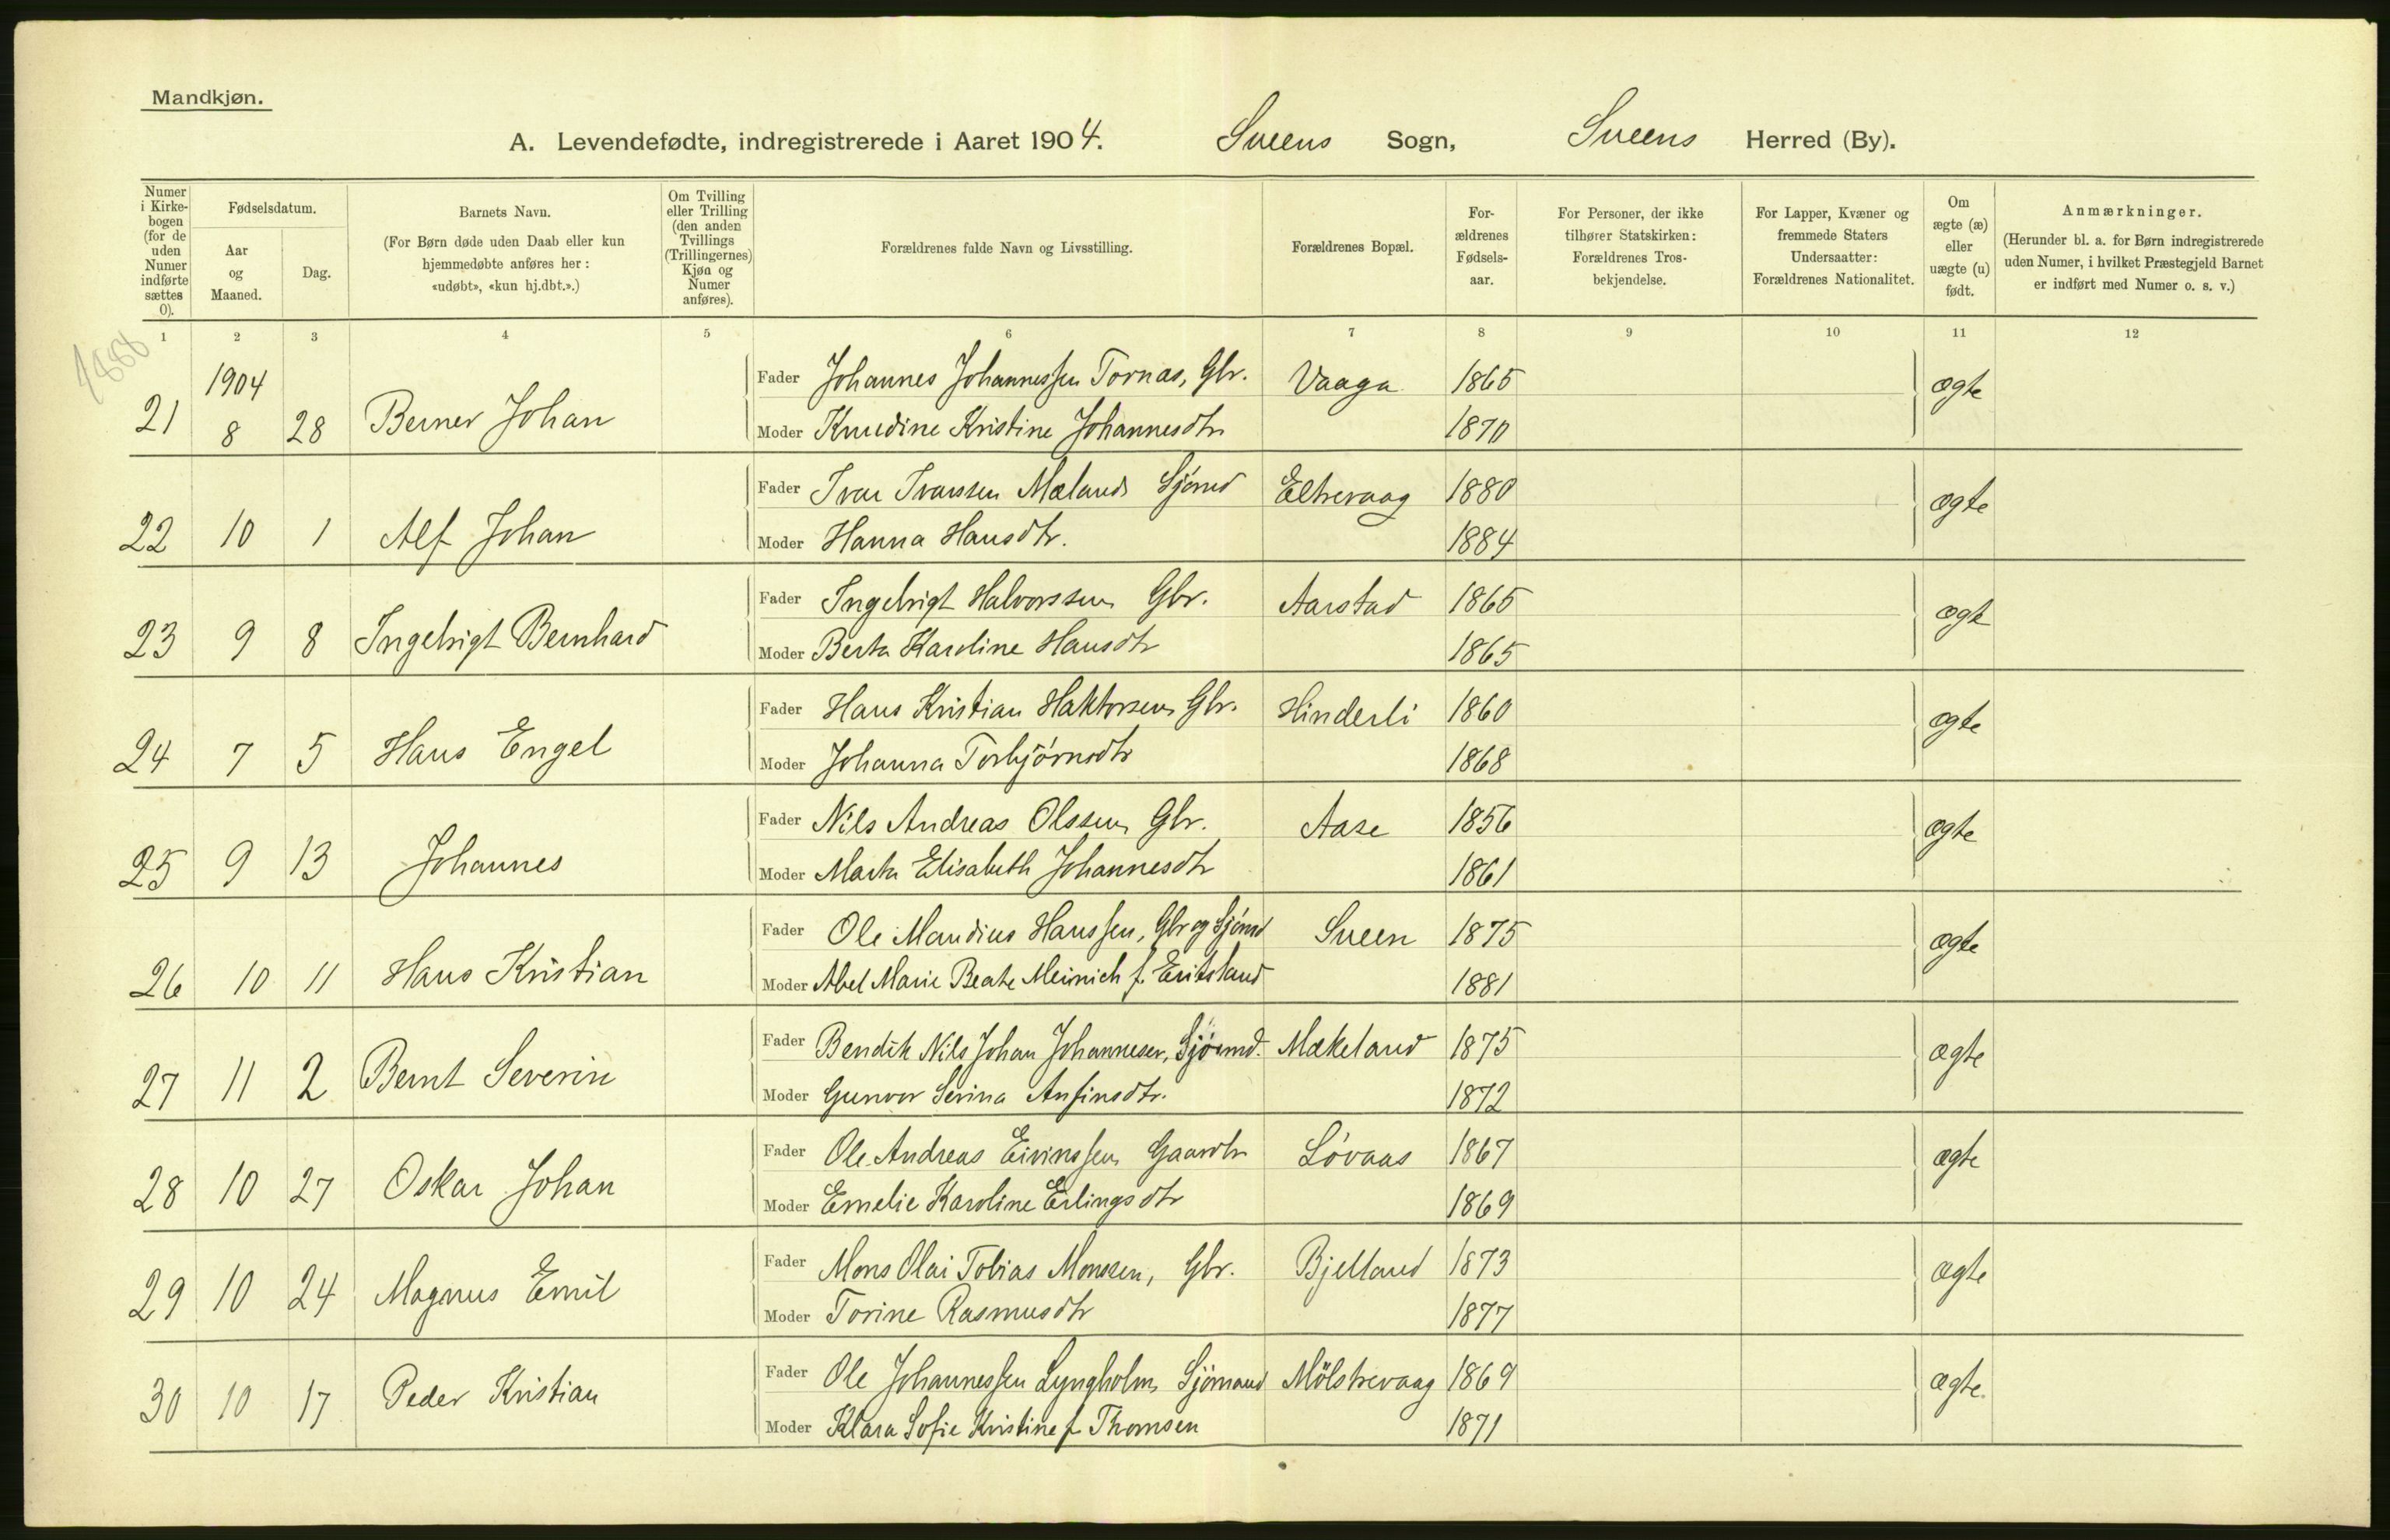 Mandkjøn.
A. Levendefødte, indregistrerede i Aaret 1904. Sveens Sogn, Sveens Herred (By).
Numer i Kirke-bogen (for de uden Numer indførte sættes 0).
Fødselsdatum.
Aar og Maaned.
Dag.
Barnets Navn.
(For Børn døde uden Daab eller kun hjemmedøbte anføres her: «udøbt», «kun hj.dbt.».)
Om Tvilling eller Trilling (den anden Tvillings (Trillingernes) Kjøn og Numer anføres).
Forældrenes fulde Navn og Livsstilling.
Forældrenes Bopæl.
For-ældrenes Fødsels-aar.
For Personer, der ikke tilhører Statskirken: Forældrenes Tros-bekjendelse.
For Lapper, Kvæner og fremmede Staters Undersaatter: Forældrenes Nationalitet.
Om ægte (æ) eller uægte (u) født.
Anmærkninger.
(Herunder bl. a. for Børn indregistrerede uden Numer, i hvilket Præstegjeld Barnet er indført med Numer o. s. v.)
1 2 3 4 5 6 7 8 9 10 11 12
1888
1904
21 8 28 Berner Johan Fader Johannes Johannessen Tornas, Gbr. Vaaga 1865 ægte
Moder Knudine Kristine Johannesdtr 1870
22 10 1 Alf Johan Fader Ivar Ivarssen Mæland Sjømd Eltrevaag 1880 ægte
Moder Hanna Hansdtr. 1884
23 9 8 Ingebrigt Bernhard Fader Ingebrigt Halvorssen Gbr. Aarstad 1865 ægte
Moder Berta Karoline Hansdtr 1865
24 7 5 Hans Engel Fader Hans Kristian Haktorsen Gbr. Hinderli 1860 ægte
Moder Johanna Torbjørnsdtr 1868
25 9 13 Johannes Fader Nils Andreas Olssen Gbr. Aase 1856 ægte
Moder Marta Elisabeth Johannesdtr 1861
26 10 11 Hans Kristian Fader Ole Mandius Hanssen, Gbr og Sjømd Sveen 1875 ægte
Moder Abel Marie Beate Meinich f. Eritsland 1881
27 11 2 Bernt Severin Fader Bendik Nils Johan Johannesen, Sjømd. Mækeland 1875 ægte
Moder Gunvor Serina Anfinsdtr. 1872
28 10 27 Oskar Johan Fader Ole Andreas Eivinssen Gaardbr Løvaas 1867 ægte
Moder Emelie Karoline Erlingsdtr 1869
29 10 24 Magnus Emil Fader Mons Olai Tobias Monssen, Gbr. Bjelland 1873 ægte
Moder Torine Rasmusdtr 1877
30 10 17 Peder Kristian Fader Ole Johannessen Lyngholm Sjømand Mölstrevaag 1869 ægte.
Moder Klara Sofie Kristine f Thomsen 1871